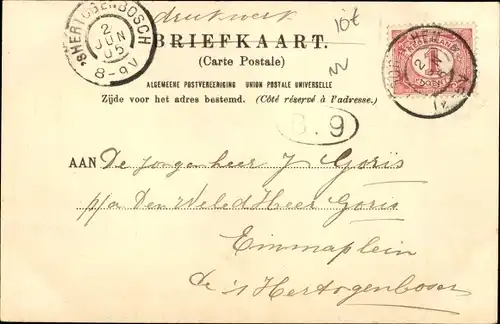 drukwerk
10€
'S HERTOGENBOSCH
2
JUN
05
8-9V
BRIEFKAART.
(Carte Postale)
NEDERLAND
1
CENT
ALGEMEENE POSTVEREENIGING UNION POSTALE UNIVERSELLE
Zijde voor het adres bestemd. (Côté réservé à l'adresse.)
B. 9
AAN De jongeheer J Goris
p/a Den WelEd Heer Goris
Emmaplein
de 's Hertogenbosch